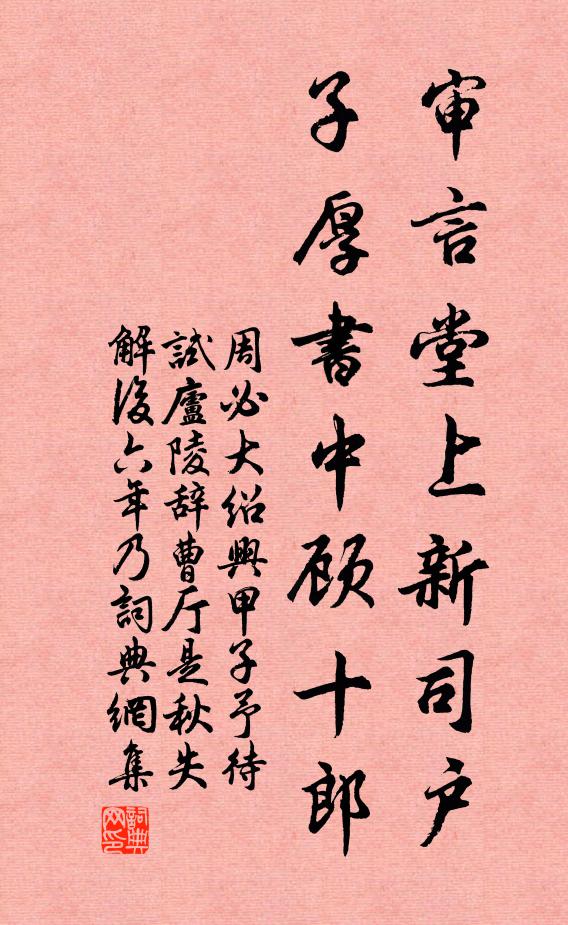 审言堂上新司户
子厚書中顾十郎
周必大绍興甲子予待
試廬陵辞曹厅是秋失
解後六年乃詞典網集
詞典
网印